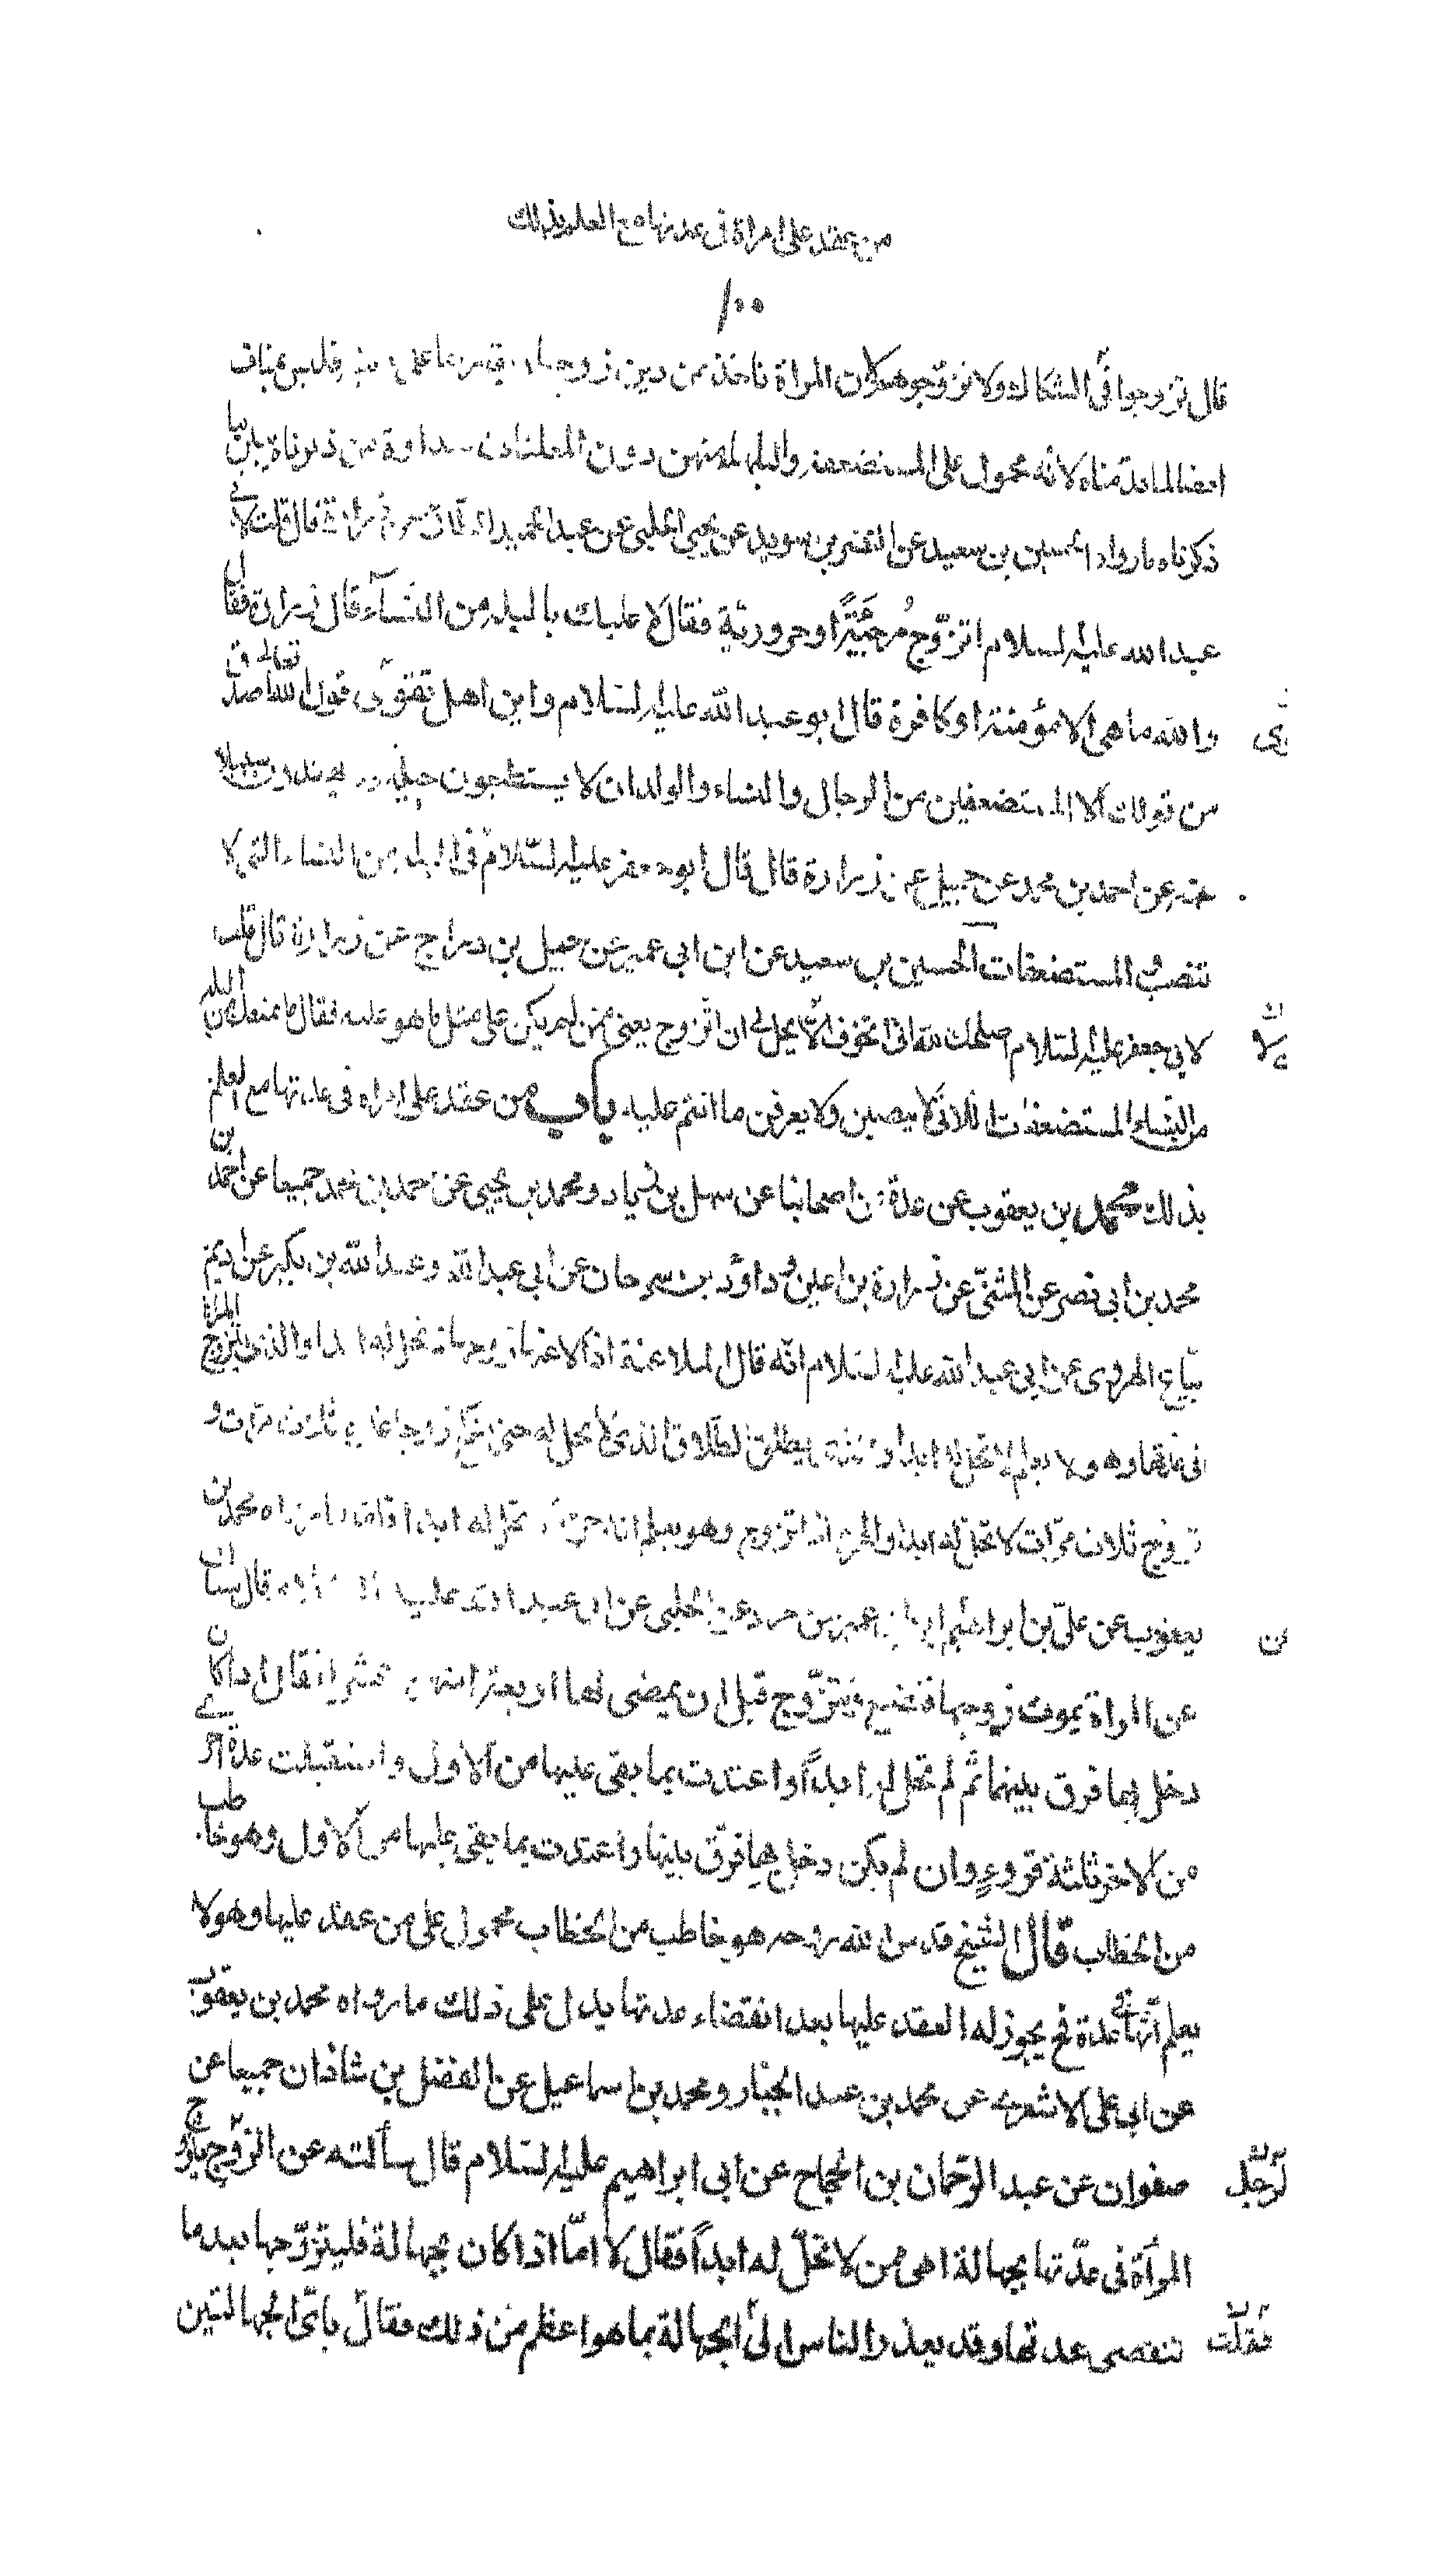 من عقد على امراة في عدتها مع العلم بذلك
١٠٠
قال تزوجوا في الشكاك ولا تزوجوهم لان المراة تاخذ من دين زوجها فليس بمناف
ايضا لما قدمناه لانه محمول على المستضعفين والبله منهن دون المعلنات بعداوة من ذكرناه يبين
ذكرناه ما رواه الحسين بن سعيد عن النضر بن سويد عن يحيى الحلبي عن عبد الحميد عن زرارة قال قلت لابي
عبد الله عليه السلام اتزوج مُرجئةً او حرورية فقال لا عليك بالبله من النساء قال زرارة فقال
والله ما هي الا مؤمنة او كافرة قال ابو عبد الله عليه السلام واين اهل تقوى قول الله تعالى اصدق
من قولك الا المستضعفين من الرجال والنساء والولدان لا يستطيعون حيلة سبيلا
عنه عن احمد بن محمد عن جميل عن زرارة قال قال ابو جعفر عليه السلام في البله من النساء التي لا
تنصب والمستضعفات الحسين بن سعيد عن ابن ابي عمير عن جميل بن دراج عن زرارة قال قلت
لابي جعفر عليه السلام اصلحك الله اني اتخوف الا يحل لي ان اتزوج يعني ممن لم يكن على مثل ما هو عليه فقال ما يمنعك من البله
من النساء المستضعفات اللاتي لا ينصبن ولا يعرفن ما انتم عليه باب من عقد على امراه في عدتها مع العلم
بذلك محمد بن يعقوب عن عدة من اصحابنا عن سهل بن زياد ومحمد بن يحيى عن احمد بن محمد جميعا عن احمد بن
محمد بن ابي نصر عن المثنى عن زرارة بن اعين وداود بن سرحان عن ابي عبد الله وعبد الله بن بكير عن اديم
بياع الهروي عن ابي عبد الله عليه السلام انه قال الملاعنة اذا لاعنها زوجها لم تحل له ابدا والذي يتزوج المراة
في عدتها وهو لا يعلم لا تحل له ابدا والذي يطلق الطلاق الذي لا تحل له حتى تنكح زوجا غيره ثلاث مرات و
تزوج ثلاث مرات لا تحل له ابدا والمحرم اذا تزوج وهو يعلم انه حرام لم تحل له ابدا فاما ما رواه محمد بن
يعقوب عن علي بن ابراهيم عن ابيه عن ابن ابي عمير عن حماد عن الحلبي عن ابي عبد الله عليه السلام قال سألته
عن المراة يموت زوجها فتضع وتتزوج قبل ان يمضي لها اربعة اشهر وعشرا فقال ان كان
دخل بها فرق بينهما ثم لم تحل له ابداً واعتدت بما بقي عليها من الاول واستقبلت عدة اخرى
من الاخر ثلثة قروء وان لم يكن دخل بها فرق بينهما واعتدت بما بقي عليها من الاول وهو خاطب
من الخطاب قال الشيخ قدس الله روحه هو خاطب من الخطاب محمول على من عقد عليها وهو لا
يعلم انها في عدة فح يجوز له العقد عليها بعد انقضاء عدتها يدل على ذلك ما رواه محمد بن يعقوب
عن ابي علي الاشعري عن محمد بن عبد الجبار ومحمد بن اسماعيل عن الفضل بن شاذان جميعا عن
صفوان عن عبد الرحمان بن الحجاج عن ابي ابراهيم عليه السلام قال سألته عن الزوج يتزوج
لرجل
المرأة في عدتها بجهالة اهي ممن لا تحل له ابداً فقال لا امّا اذا كان بجهالة فليتزوجها بعد ما
تنقضي عدتها وقد يعذر الناس في الجهالة بما هو اعظم من ذلك فقال بايّ الجهالتين
فقلت